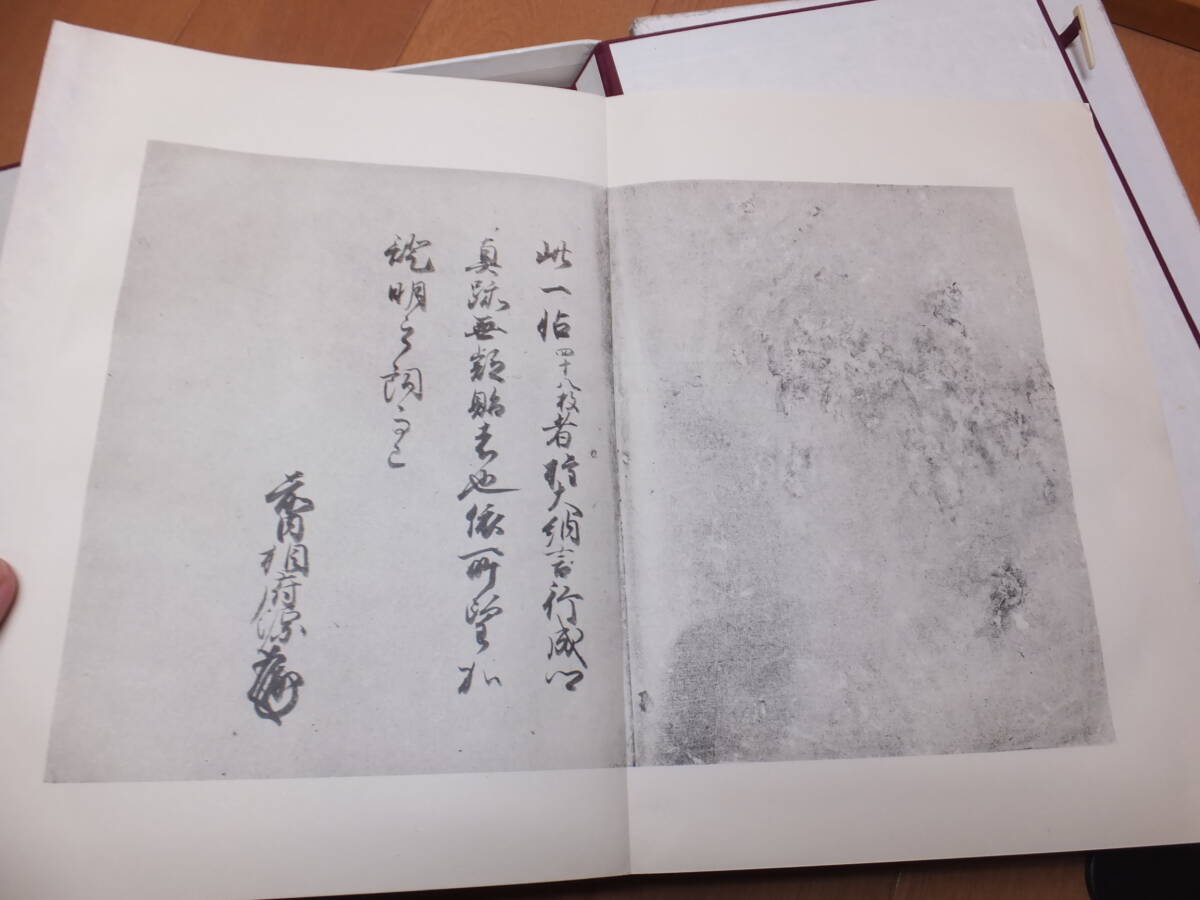 此一帖四十八枚者権大納言行成卿
真跡無類賜者也依所望加
證明之詞而已
前内相府源